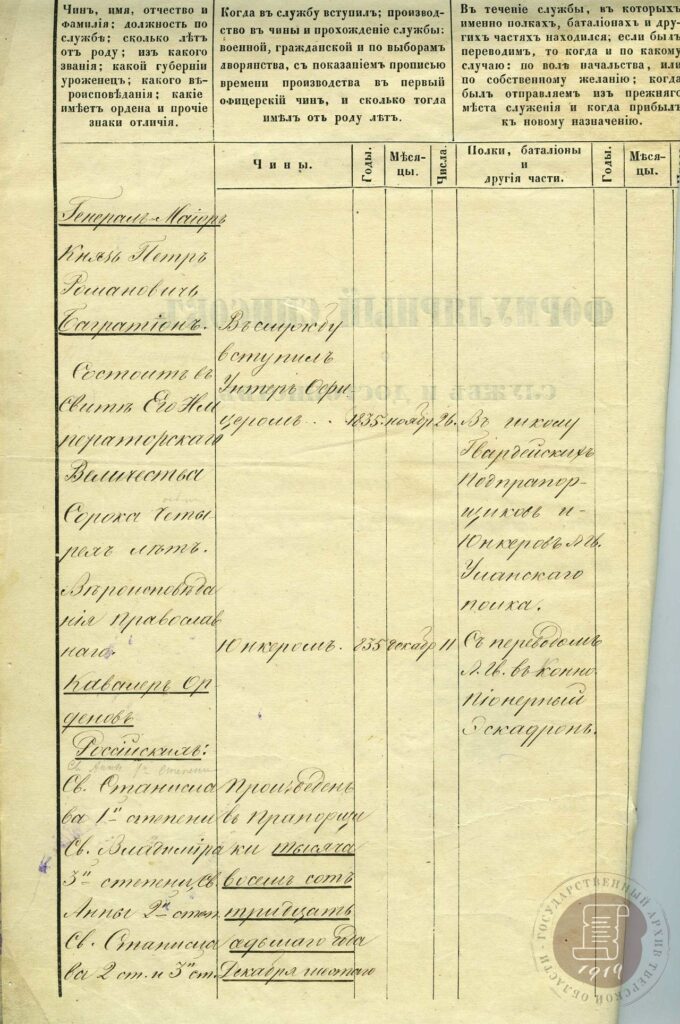 Чинъ, имя, отчество и
фамилія; должность по
службѣ; сколько лѣтъ
отъ роду; изъ какого
званія; какой губерніи
уроженецъ; какого вѣ-
роисповѣданія; какіе
имѣетъ ордена и прочіе
знаки отличія.
Когда въ службу вступилъ; производ-
ство въ чины и прохожденіе службы:
военной, гражданской и по выборамъ
дворянства, съ показаніемъ прописью
времени производства въ первый
офицерскій чинъ, и сколько тогда
имѣлъ отъ роду лѣтъ.
Въ теченіе службы, въ которыхъ
именно полкахъ, баталіонахъ и дру-
гихъ частяхъ находился; если былъ
переводимъ, то когда и по какому
случаю: по волѣ начальства, или
по собственному желанію; когда
былъ отправляемъ изъ прежняго
мѣста служенія и когда прибылъ
къ новому назначенію.
Чины.
Годы.
Мѣся-
цы.
Числа.
Полки, баталіоны
и
другія части.
Годы.
Мѣся-
цы.
Генералъ-Маіоръ
Князь Петръ
Романовичъ
Багратіонъ.
Состоитъ въ
Свитѣ Его Им
ператорскаго
Величества
Сорока четы
рехъ лѣтъ.
Вѣроисповѣда
нія Православ
наго.
Кавалеръ Ор-
деновъ
Россійскихъ:
Св. Анны 1й степени
Св. Станисла
ва 1й степени
Св. Владиміра
3й степени, Св.
Анны 2й степ.
Св. Станисла
ва 2 ст. и 3й ст.
Въ службу
вступилъ
Унтеръ Офи
церомъ... 1835 ноябр 26.
Юнкеромъ. 835 декабр 11
Произведенъ
въ Прапорщи
ки тысяча
восемь сотъ
тридцать
адьмаго года
Декабря шестаго
Въ школу
Гвардейскихъ
Подпрапор-
щиковъ и
Юнкеровъ Л.Гв.
Уланскаго
полка.
Съ переводомъ
Л.Гв. въ Конно
Піонерный
Эскадронъ.
ФОРМУЛЯРНЫЙ СПИСОКЪ
О
СЛУЖБѢ И ДОСТОИНСТВѢ
ГОСУДАРСТВЕННЫЙ АРХИВ ТВЕРСКОЙ ОБЛАСТИ
1919